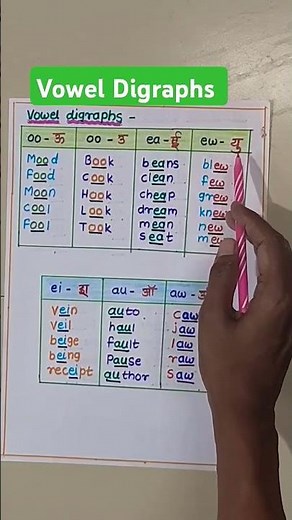 Vowel Digraphs
Vowel digraphs -
oo - ऊ oo - उ ea - ई ew - यु
Mood Book beans blew
Food cook clean few
Moon Hook cheap grew
cool Look dream knew
Fool Took mean new
seat mew
ei - इा au - ऑ aw -
vein auto caw
veil haul jaw
beige fault law
being Pause raw
receipt author saw